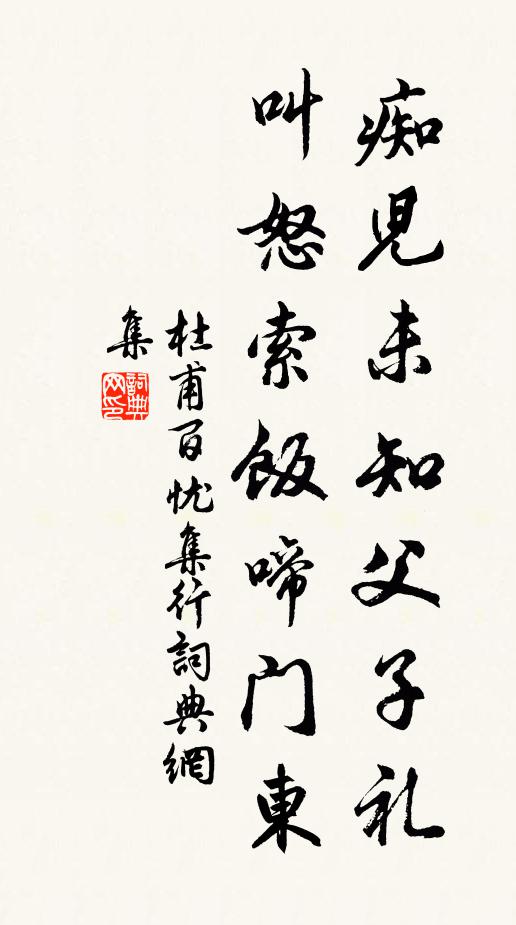 痴児未知父子礼
叫怒索飯啼门東
杜甫百忧集行詞典網
集
詞典
网印